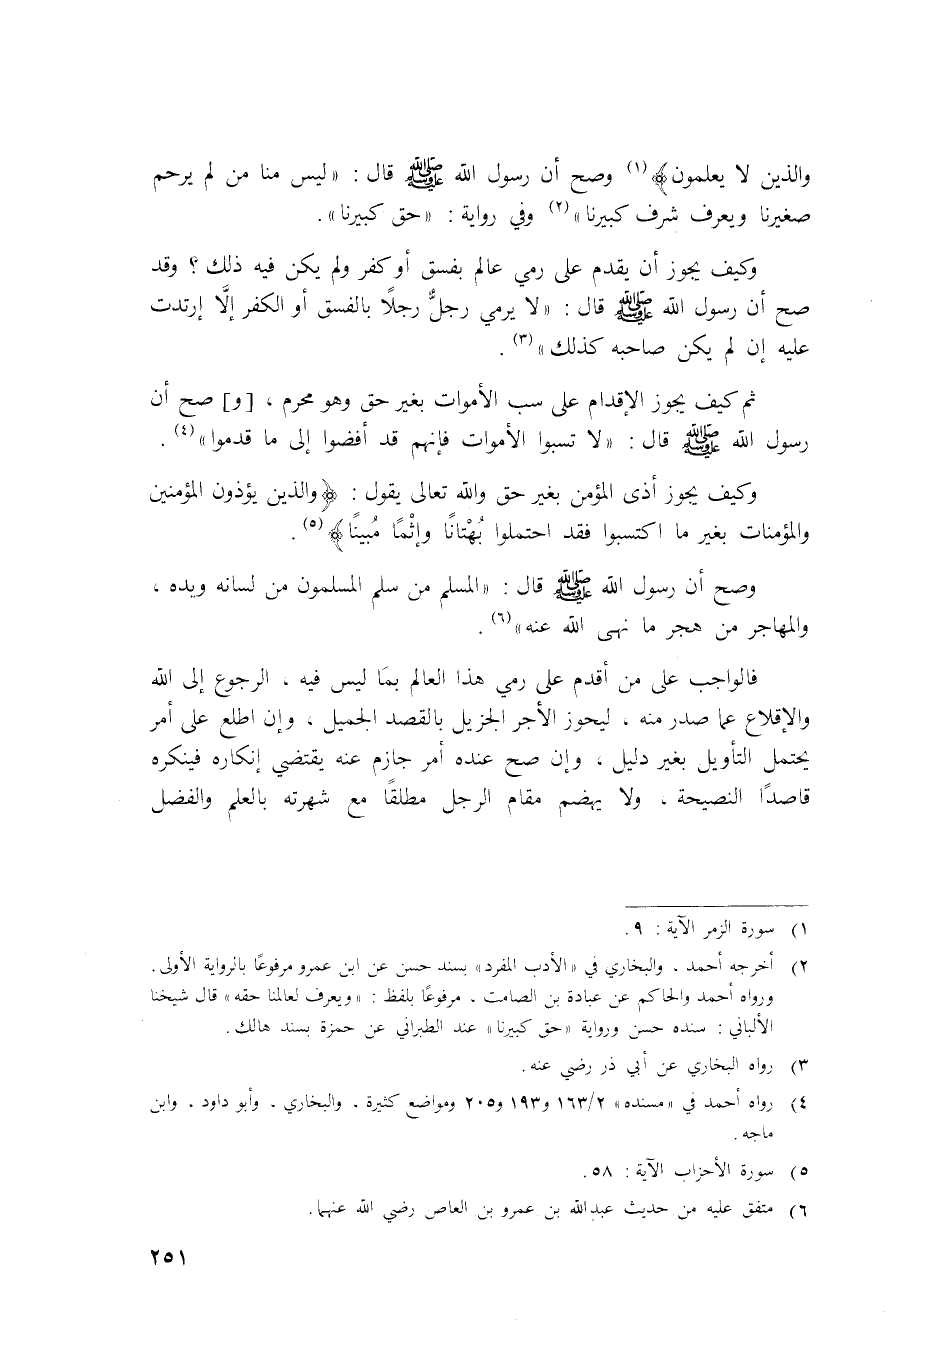 والذين لا يعلمون﴾(١) وصح أن رسول الله ﷺ قال : «ليس منا من لم يرحم
صغيرنا ويعرف شرف كبيرنا»(٢) وفي رواية : «حق كبيرنا» .
وكيف يجوز أن يقدم على رمي عالم بفسق أو كفر ولم يكن فيه ذلك ؟ وقد
صح أن رسول الله ﷺ قال : «لا يرمي رجلٌ رجلًا بالفسق أو الكفر إلَّا إرتدت
عليه إن لم يكن صاحبه كذلك»(٣) .
ثم كيف يجوز الإقدام على سب الأموات بغير حق وهو محرم ، [و] صح أن
رسول الله ﷺ قال : «لا تسبوا الأموات فإنهم قد أفضوا إلى ما قدموا»(٤) .
وكيف يجوز أذى المؤمن بغير حق والله تعالى يقول : ﴿والذين يؤذون المؤمنين
والمؤمنات بغير ما اكتسبوا فقد احتملوا بُهْتانًا وإثْمًا مُبينًا﴾(٥) .
وصح أن رسول الله ﷺ قال : «المسلم من سلم المسلمون من لسانه ويده ،
والمهاجر من هجر ما نهى الله عنه»(٦) .
فالواجب على من أقدم على رمي هذا العالم بمَا ليس فيه ، الرجوع إلى الله
والإقلاع عما صدر منه ، ليحوز الأجر الجزيل بالقصد الجميل ، وإن اطلع على أمر
يحتمل التأويل بغير دليل ، وإن صح عنده أمر جازم عنه يقتضي إنكاره فينكره
قاصدًا النصيحة ، ولا يهضم مقام الرجل مطلقًا مع شهرته بالعلم والفضل
١) سورة الزمر الآية : ٩ .
٢) أخرجه أحمد . والبخاري في «الأدب المفرد» بسند حسن عن ابن عمرو مرفوعًا بالرواية الأولى .
ورواه أحمد والحاكم عن عبادة بن الصامت . مرفوعًا بلفظ : «ويعرف لعالمنا حقه» قال شيخنا
الألباني : سنده حسن ورواية «حق كبيرنا» عند الطبراني عن حمزة بسند هالك .
٣) رواه البخاري عن أبي ذر رضي عنه .
٤) رواه أحمد في «مسنده» ١٦٣/٢ و١٩٣ و٢٠٥ ومواضع كثيرة . والبخاري . وأبو داود . وابن
ماجه .
٥) سورة الأحزاب الآية : ٥٨ .
٦) متفق عليه من حديث عبدالله بن عمرو بن العاص رضي الله عنهما .
٢٥١